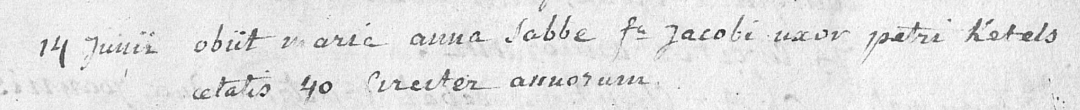 14 Junii obiit maria anna Sabbe fa Jacobi uxor petri Ketels
ætatis 40 Circiter annorum.